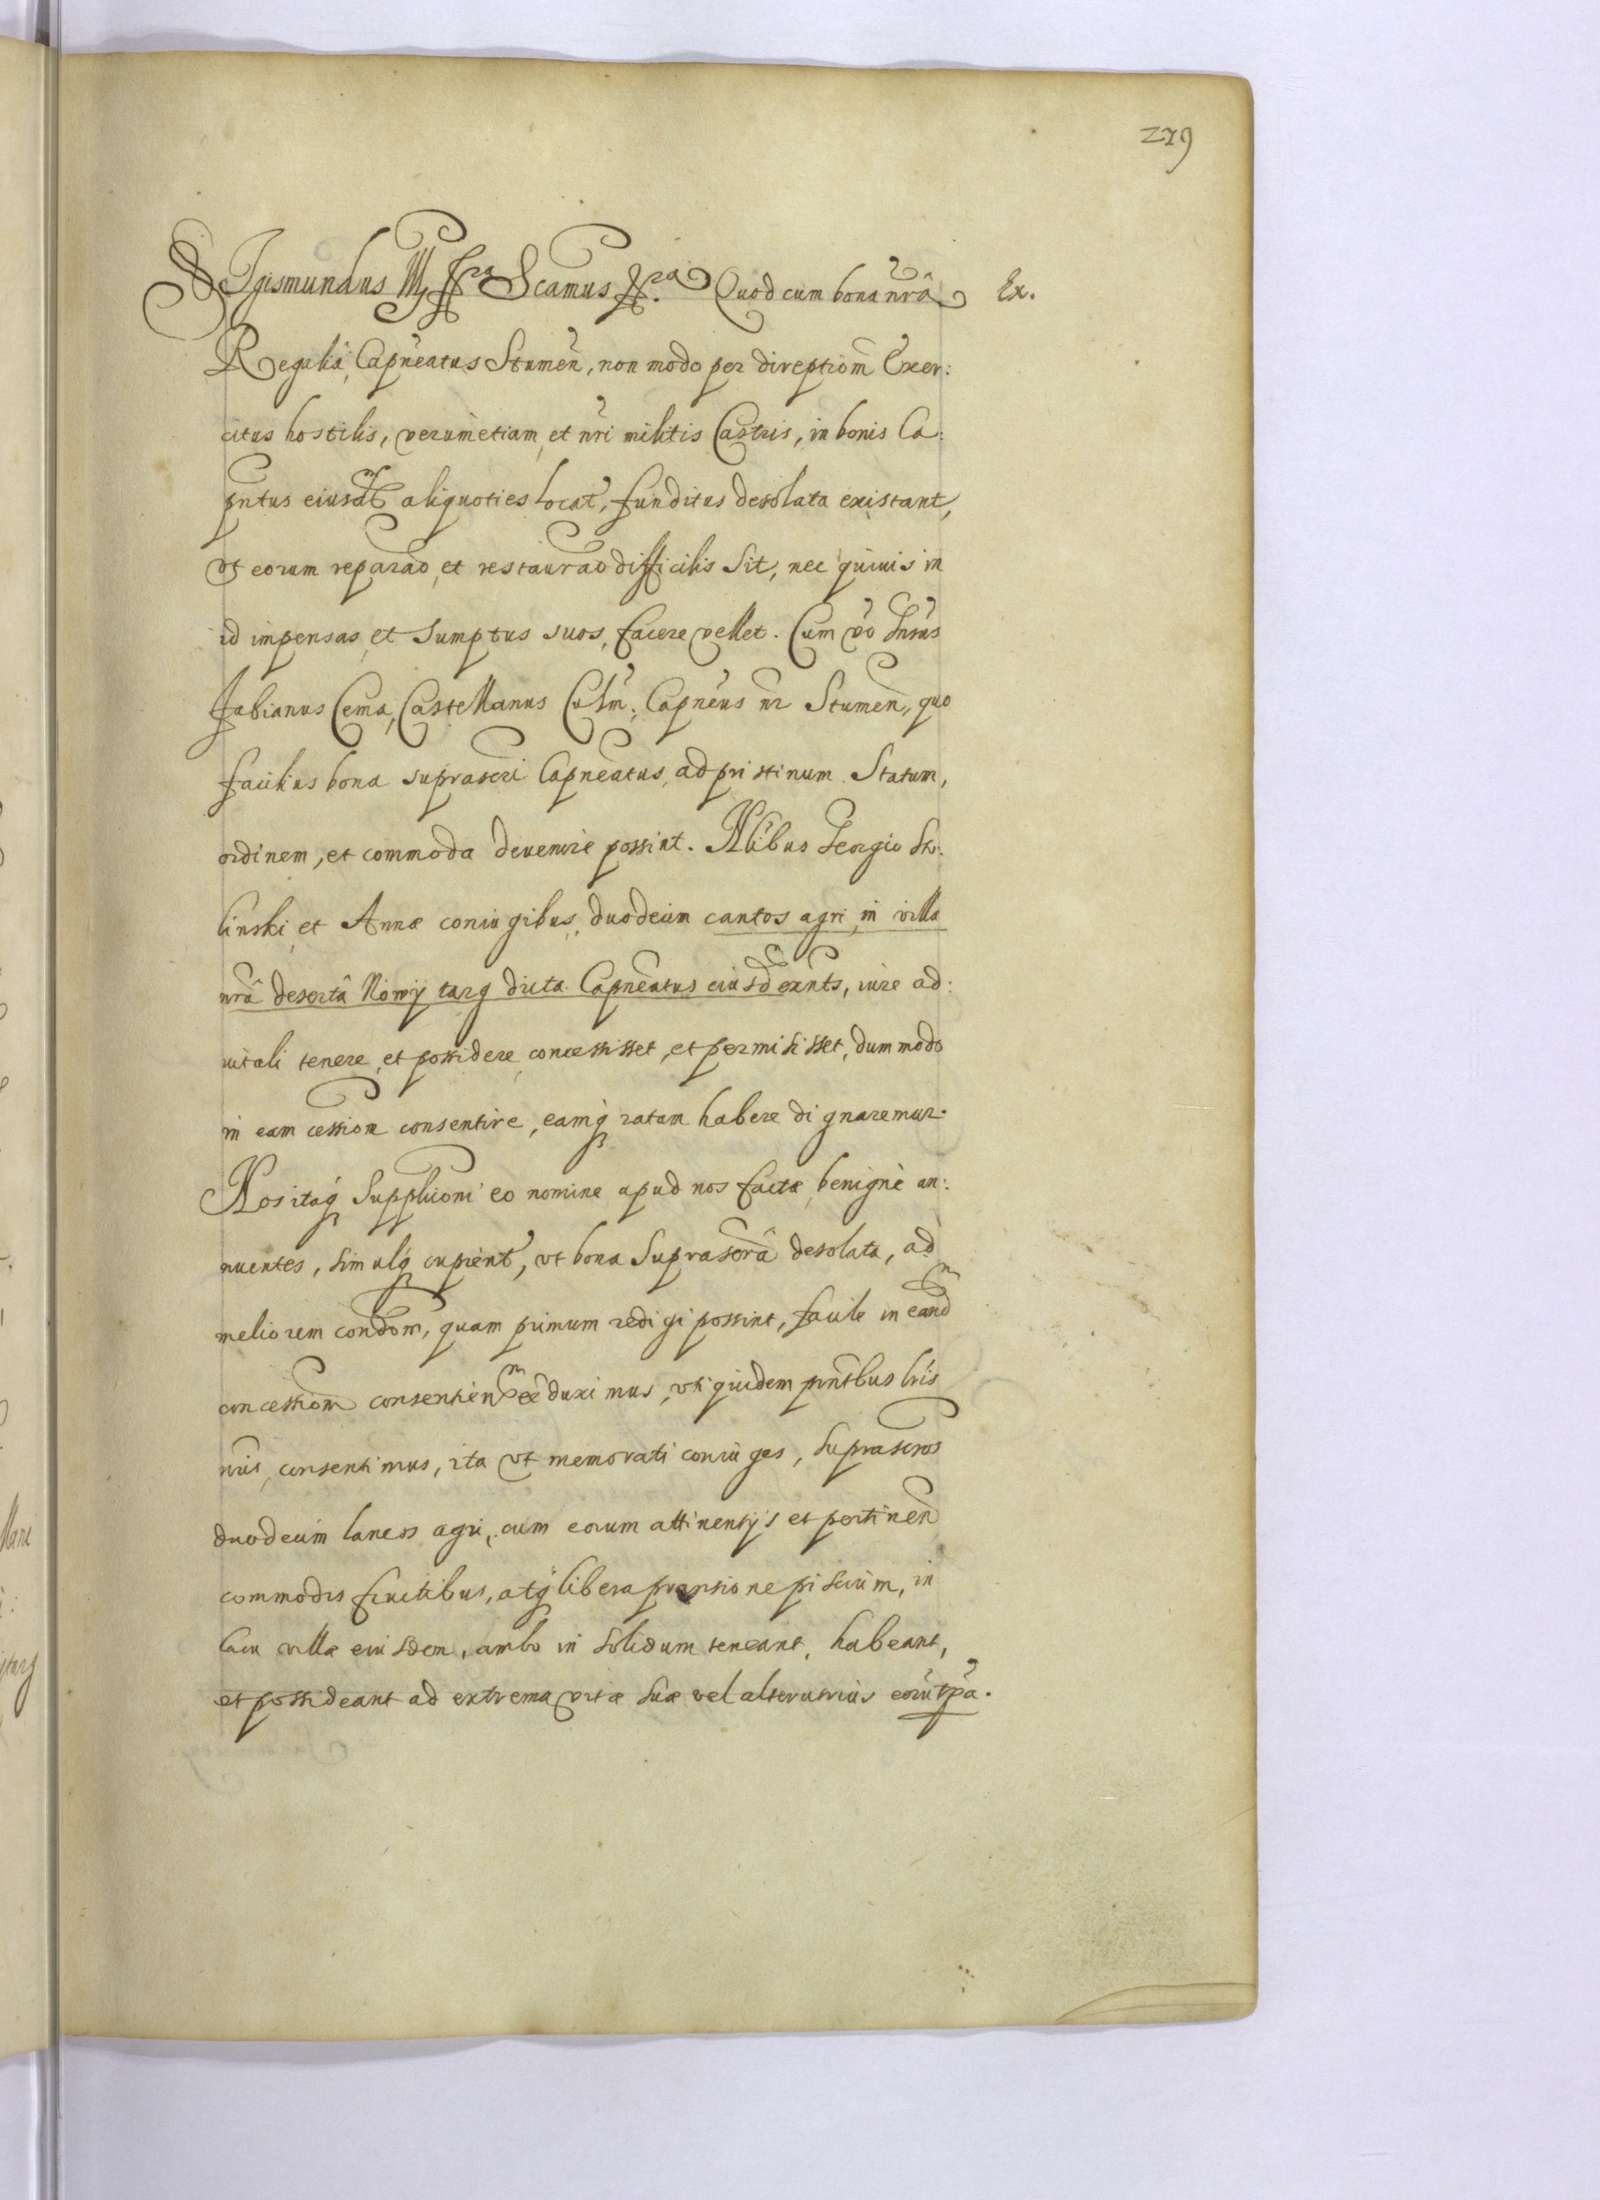 279
Sigismundus III etc. Scamus etc. Quod cum bona nrâ Ex.
Regalia, Capneatus Stumen, non modo per direptiom Exer:
citus hostilis, verumetiam et nri militis Castris, in bonis Ca:
pntus eiusd aliquoties locat, funditus desolata existant,
vt eorum reparao, et restaurao difficilis sit, nec quiuis in
id impensas et sumptus suos, facere vellet. Cum vo Gnsus
Fabianus Cema, Castellanus Culm: Capneus nr Stumen, quo
facilius bona suprascri Capneatus, ad pristinum Statum,
ordinem, et commoda deuenire possint. Nlibus Georgio
linski et Annæ coniugibus, duodecim cantos agri, in villa
nrâ desertâ Nowy targ dicta Capneatus eiusd exnts, iure ad:
uitali tenere, et possidere concessisset, et permisisset, dummodo
in eam cessiom consentire, eamq ratam habere dignaremur.
Nos itaq Supplicioni eo nomine apud nos factæ, benignè an:
nuentes, simulq cupient, vt bona Suprascrâ desolata, ad
meliorem condom, quam primum redigi possint, facile in eand
concessiom consentien ee duximus, vti quidem pntbus lris
nris consentimus, ita vt memorati coniuges, suprascros
duodecim laneos agri, cum eorum attinentijs et pertinen
commodis fructibus, atq libera piscium, in
lacu villæ eiusdem, ambo in solidum teneant, habeant,
et possideant ad extrema vitæ suæ vel alterutrius eorut pa.